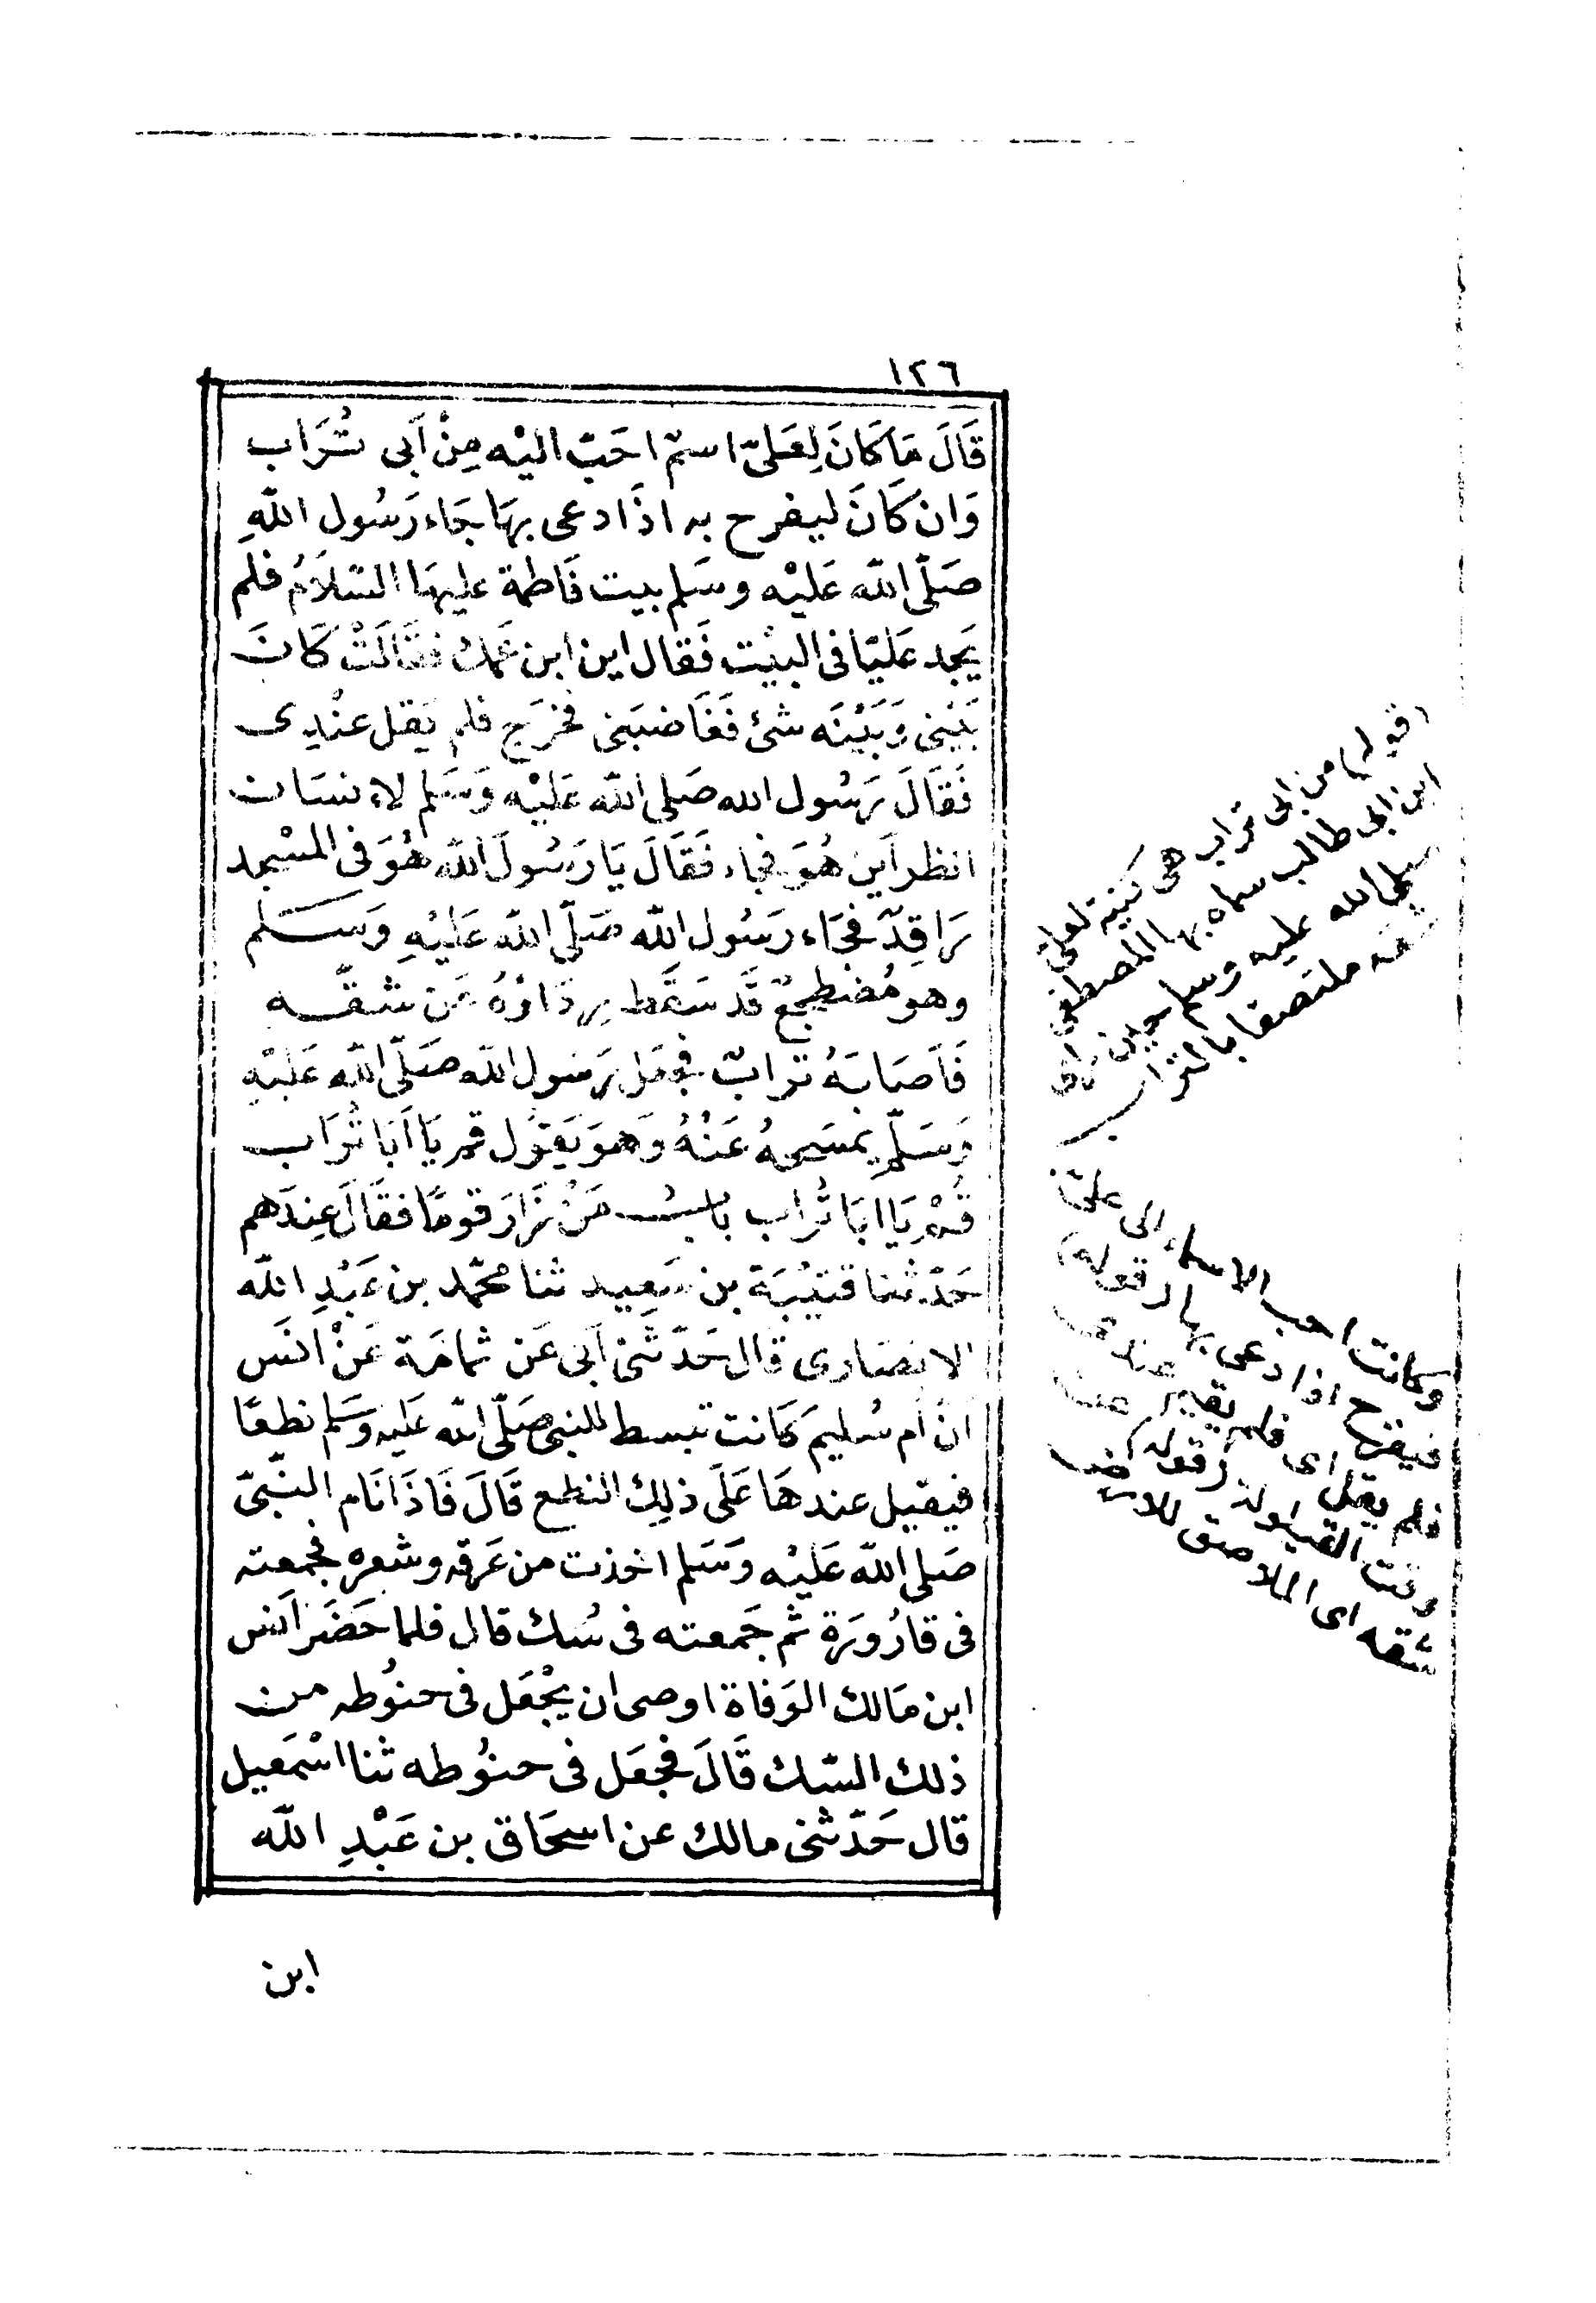 ١٢٦
قَالَ مَا كَانَ لِعَلىّ اسمٌ احَبّ اليْه مِنْ اَبى تُرَاب
وَان كَانَ ليفرح به اذَا دعى بهَا جَاء رَسُول اللّهِ
صَلّى اللّه عَليْه وسَلم بيت فَاطمة عليهَا السّلاَمُ فلم
يَجد عَليّا فى البيْت فَقال اين ابن عَمك فقَالَتْ كَانَ
بَيْنى وَبَيْنَه شئ فَغَاضبَنى فخرَج فلم يَقل عنْدِى
فَقَالَ رَسُول الله صَلى اللّه عَليْه وَسَلم لانسَان
انظر اَين هُوَ فجاء فَقَالَ يَا رَسُولَ اللّه هُوَ فى المسْجد
رَاقِدٌ فجَاء رسُول اللّه صَلّى اللّه عَلَيْهِ وَسَلم
وهو مُضطجعٌ قَد سَقَط رِدَاؤهُ عَن شقّه
فَاَصَابَهُ ترابٌ فجعَل رَسُول اللّه صَلّى اللّه عَليْهِ
وَسَلّم يمسَحهُ عَنْهُ وَهوَ يَقوُل قم يَا اَبَا تُرَاب
قُمْ يَا ابَا تُراب بابُ مَنْ زَارَ قومًا فقَالَ عِندَهم
حَدّثنا قتيْبَة بن سَعِيد ثنا محمّد بن عَبْدِ اللّه
الانصَارى قال حَدّثنى اَبى عَن ثمامَة عَنْ انَس
انّ اُم سُليم كَانت تبسط للنبى صَلّى اللّه عَليه وَسَلم نطعًا
فيقيل عندهَا عَلَى ذلِك النطع قَالَ فَاذَا نَام النّبىّ
صَلى اللّه عَليْه وَسَلم اخذت من عَرقه وشعره فجمعته
فى قارُورَة ثم جَمعته فى سُك قال فلما حَضَر اَنس
ابن مَالك الوَفاة اوصى ان يجْعَل فى حنوُطه من
ذلك السّك قَالَ فجعَل فى حنوُطه ثنا اسْمَعيل
قال حَدّثنى مالك عن اسحَاق بن عَبْدِ اللّه
ابن
(قوله) من ابى تراب هى كنية لعلىّ
ابن ابى طالب سماه بها المصطفى
صلى الله عليه وسلم حين رأى
شقه ملتصقا بالتراب
وكانت احب الاسماء الى علىّ
فيفرح اذا دعى بها (قوله)
فلم يقل اى فلم يقيل عندى
وقت القيلولة (قوله) عن
شقه اى الملاصق للارض